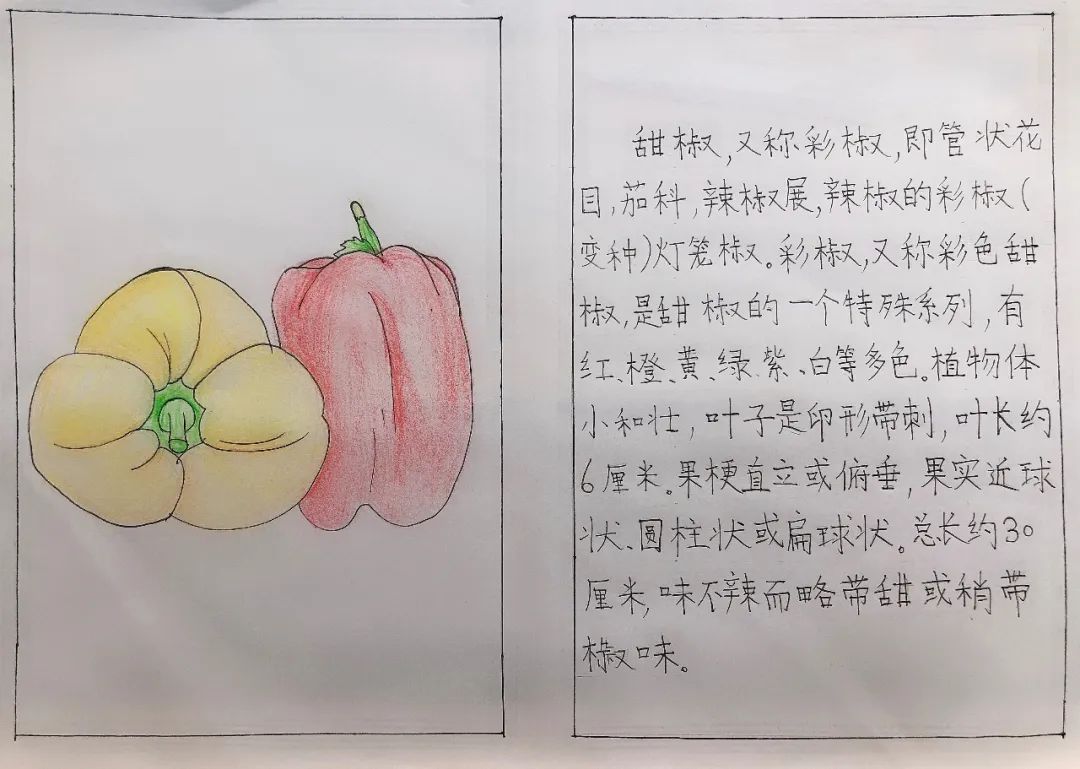 甜椒,又称彩椒,即管状花
目,茄科,辣椒展,辣椒的彩椒(
变种)灯笼椒。彩椒,又称彩色甜
椒,是甜椒的一个特殊系列,有
红、橙、黄、绿、紫、白等多色。植物体
小和壮,叶子是卵形带刺,叶长约
6厘米。果梗直立或俯垂,果实近球
状、圆柱状或扁球状。总长约30
厘米,味不辣而略带甜或稍带
椒味。